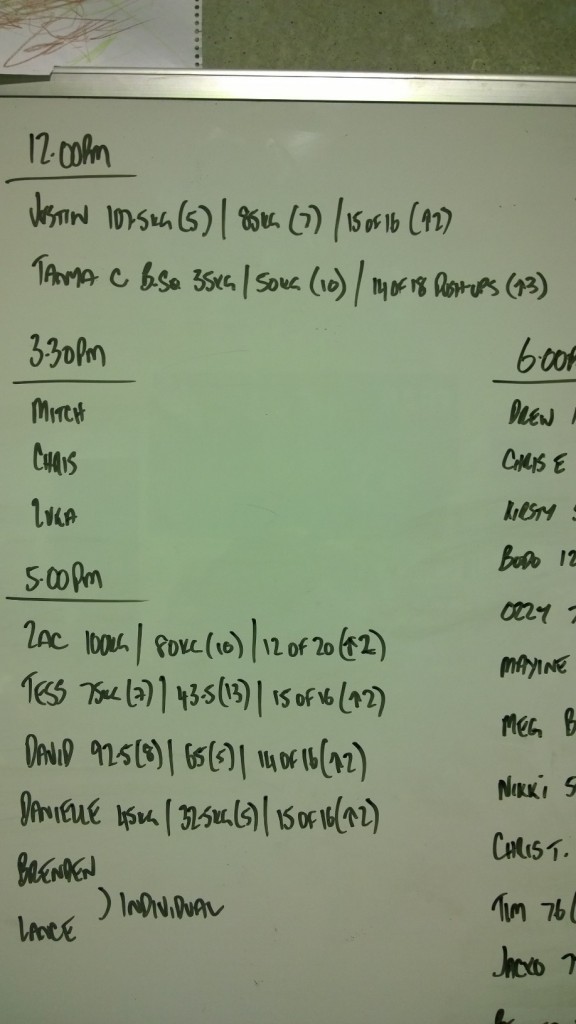 12.00PM
JUSTIN 107.5KG (5) | 85KG (7) | 15 OF 16 (↑2)
C B.SQ 35KG | 50KG (10) | 14 OF 18 PUSH-UPS (↑3)
3.30PM
MITCH
CHRIS
LUKA
5.00PM
ZAC 100KG | 80KG (10) | 12 OF 20 (↑2)
TESS 75KG (7) | 43.5 (13) | 15 OF 16 (↑2)
DAVID 92.5 (8) | 65 (5) | 14 OF 16 (↑2)
DANIELLE 45KG | 32.5KG (5) | 15 OF 16 (↑2)
BRENDEN
) INDIVIDUAL
LANCE
6.00P
DREW
CHRIS E
KIRSTY
BODO 12
OZZY 7
MAYINE
MEG B
NIKKI S
CHRIS T.
TIM 76 (
JACKO 7